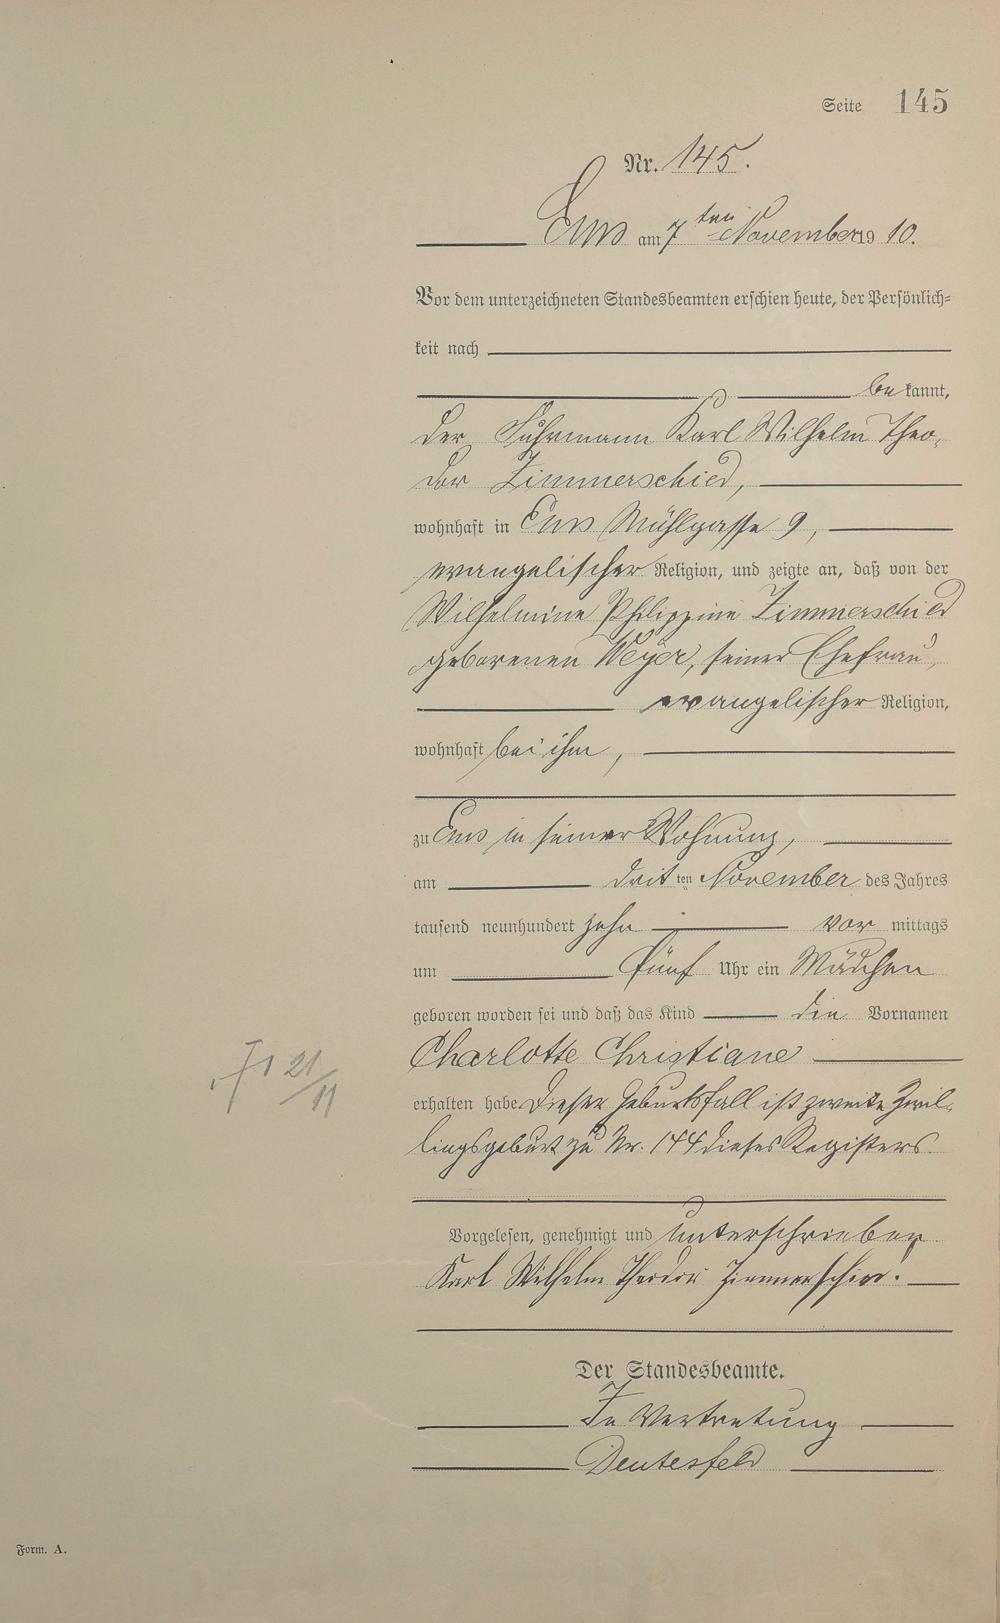 Seite 145
Nr. 145.
Ems am 7ten November 1910.
Vor dem unterzeichneten Standesbeamten erschien heute, der Persönlich=
keit nach
bekannt,
der Fuhrmann Karl Wilhelm Theo-
dor Zimmerschied,
wohnhaft in Ems Mühlgasse 9,
evangelischer Religion, und zeigte an, daß von der
Wilhelmine Philippine Zimmerschied
geborenen Weyer, seiner Ehefrau,
evangelischer Religion,
wohnhaft bei ihm,
zu Ems in seiner Wohnung,
am dritten November des Jahres
tausend neunhundert zehn vormittags
um fünf Uhr ein Mädchen
geboren worden sei und daß das Kind die Vornamen
Charlotte Christiane
erhalten habe. Dieser Geburtsfall ist zweite Zwil-
lingsgeburt zu Nr. 144 dieses Registers.
21/11
Vorgelesen, genehmigt und unterschrieben
Karl Wilhelm Theodor Zimmerschied.
Der Standesbeamte.
In Vertretung
Deutesfeld
Form. A.